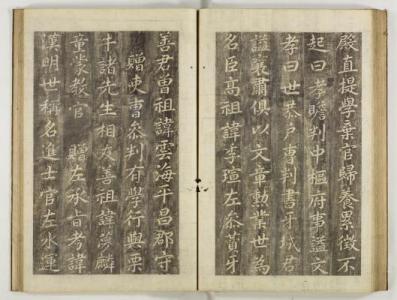 殿直提學棄官歸養累徵不
起曰孝瞻判中樞府事謚文
孝曰世恭戶曹判書牙城君
謚襄肅俱以文章勳業世為
名臣高祖諱季瑄左參贊牙
善君曾祖諱雲海平昌郡守
贈吏曹參判有學行與栗
牛諸先生相友善祖諱夢麟
童蒙教官 贈左承旨考諱
漢明世稱名進士官左水運